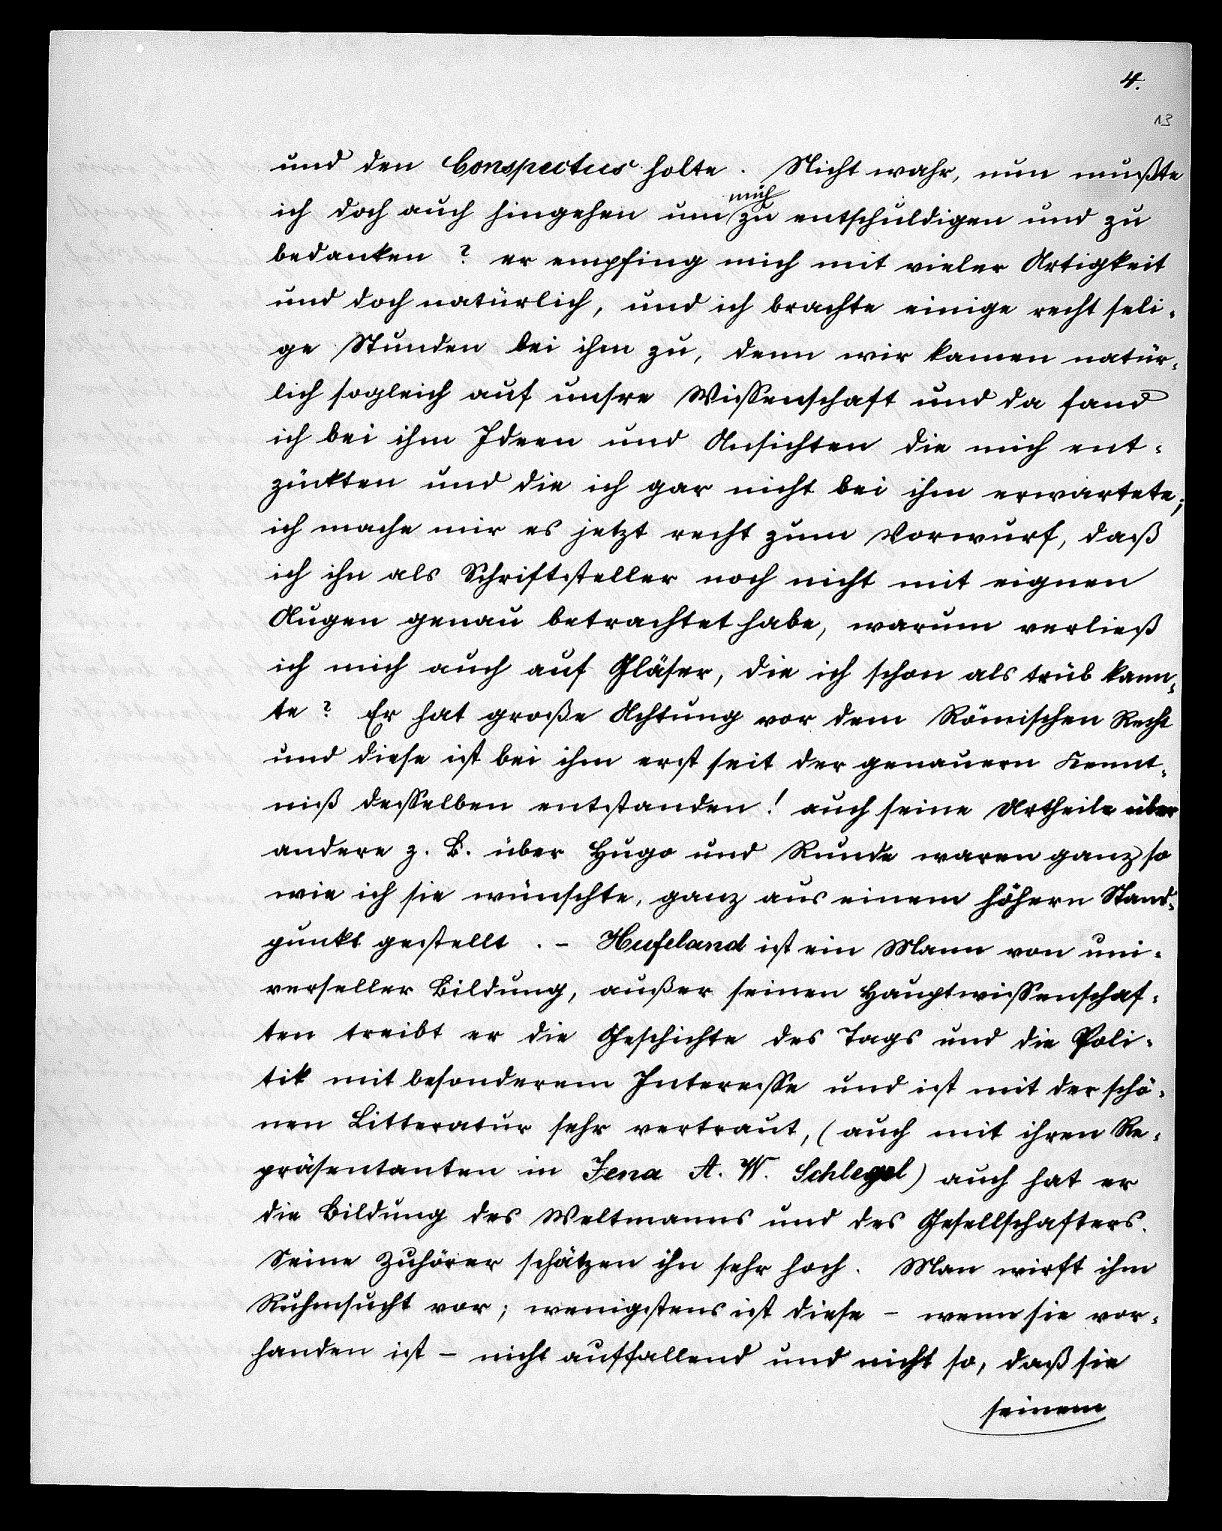 4.
13
und den Conspectus holte. Nicht wahr, nun mußte
mich
ich doch auch hingehen um zu entschuldigen und zu
bedanken? er empfing mich mit vieler Artigkeit
und doch natürlich, und ich brachte einige recht seli-
ge Stunden bei ihm zu, denn wir kamen natür-
lich sogleich auf unsre Wissenschaft und da fand
ich bei ihm Ideen und Ansichten die mich ent-
zückten und die ich gar nicht bei ihm erwartete;
ich mache mir es jetzt recht zum Vorwurf, daß
ich ihn als Schriftsteller noch nicht mit eignen
Augen genau betrachtet habe, warum verließ
ich mich auch auf Gläser, die ich schon als trüb kann-
te? Er hat große Achtung vor dem Römischen Recht
und diese ist bei ihm erst seit der genauern Kennt-
niß desselben entstanden! auch seine Urtheile über
andere z. B. über Hugo und Runde waren ganz so
wie ich sie wünschte, ganz aus einem höhern Stand-
punkt gestellt. – Hufeland ist ein Mann von uni-
verseller Bildung, außer seinen Hauptwissenschaf-
ten treibt er die Geschichte des Tags und die Poli-
tik mit besonderem Interesse und ist mit der schö-
nen Litteratur sehr vertraut, (auch mit ihren Re-
präsentanten in Jena A. W. Schlegel) auch hat er
die Bildung des Weltmanns und des Gesellschafters.
Seine Zuhörer schätzen ihn sehr hoch. Man wirft ihm
Ruhmsucht vor; wenigstens ist diese – wenn sie vor-
handen ist – nicht auffallend und nicht so, daß sie
seinem